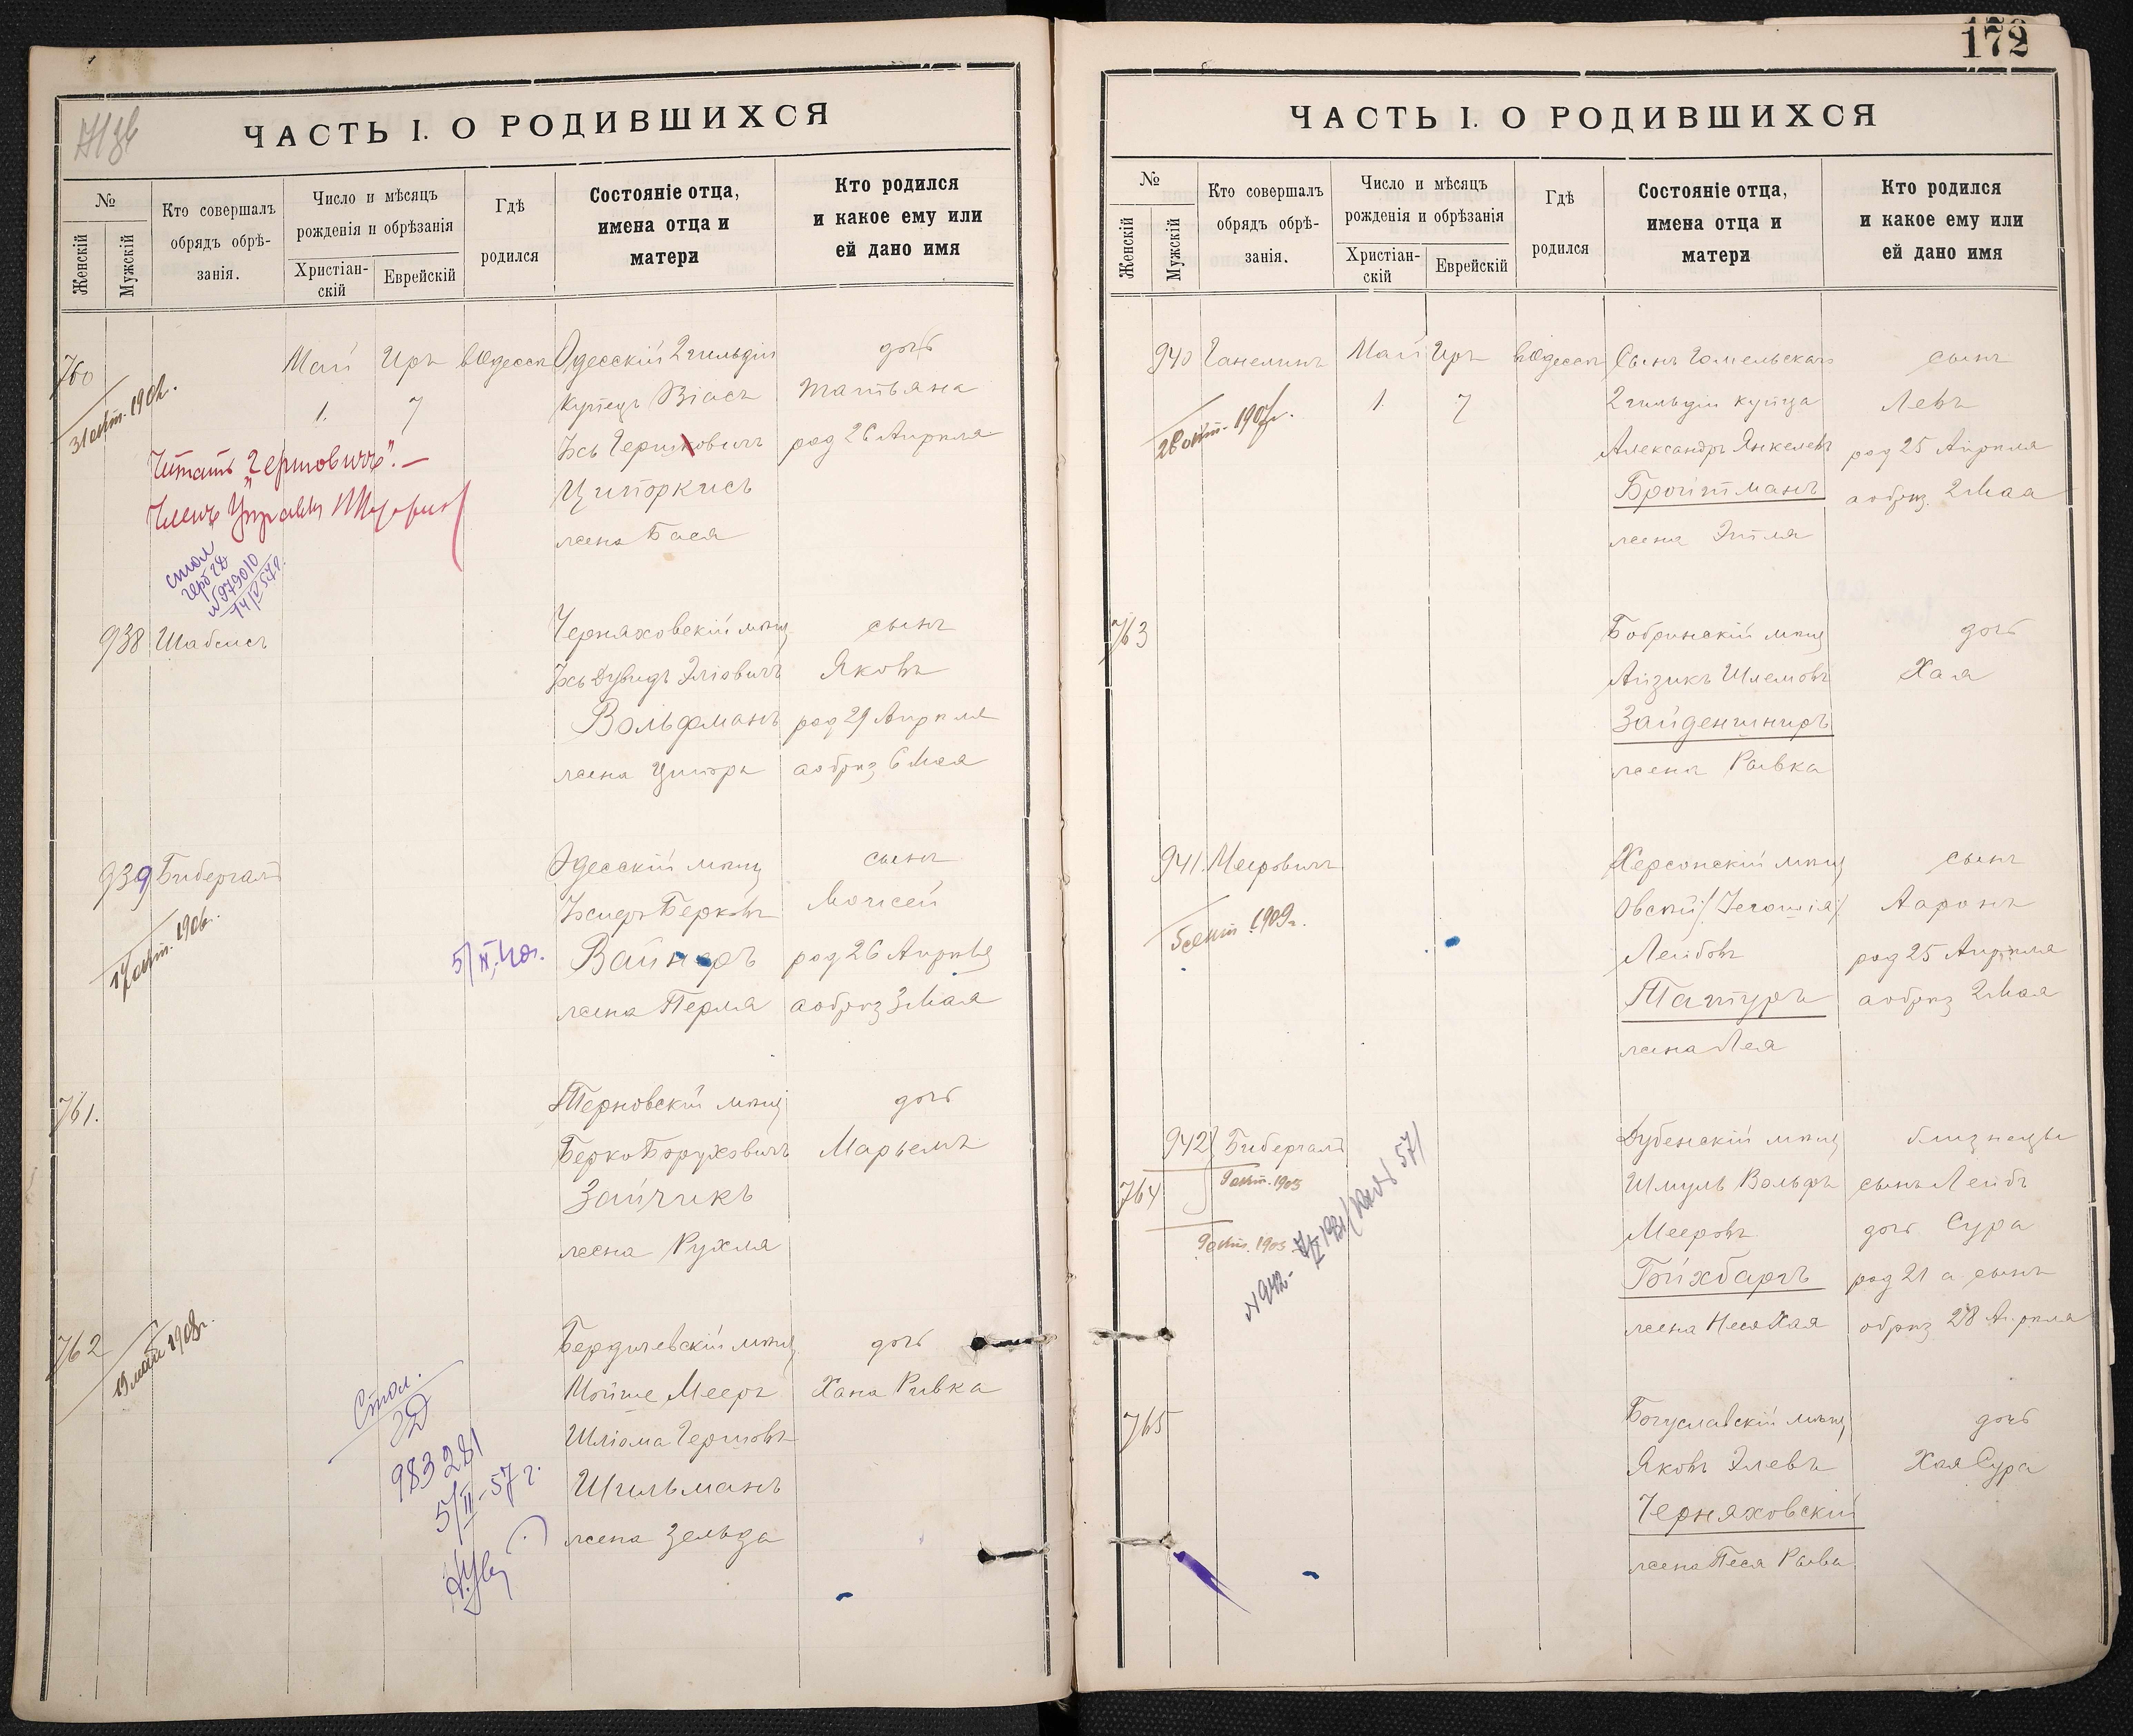 ЧАСТЬ I. О РОДИВШИХСЯ
№
Женскій
Мужскій
Кто совершалъ
обрядъ обрѣ-
занія.
Число и мѣсяцъ
рожденія и обрѣзанія
Христіан-
скій
Еврейскій
Гдѣ
родился
Состояніе отца,
имена отца и
матери
Кто родился
и какое ему или
ей дано имя
760
31 окт. 1902.
Май
1.
Иръ
7
в Одессѣ
Одесскій 2 гильдіи
купецъ
Іось Гершковичъ
Ципоркисъ
жена Бася
дочь
Татьяна
род 26 Апрѣля
Читать "Гершовичъ". —
Членъ Управы
№979010
938
Шабсисъ
Черняховскій мѣщ
Іось Дувидъ Эліовичъ
Вольфманъ
жена Ципора
сынъ
Яковъ
род 29 Апрѣля
а обрѣз 6 Мая
939
Бибергалъ
17 окт. 1906.
Одесскій мѣщ
Берковъ
Вайнеръ
жена Перля
сынъ
Моисей
род 26 Апрѣля
а обрѣз 3 Мая
761.
Терновскій мѣщ
Берко Боруховичъ
Зайчикъ
жена Рухля
дочь
Марьемъ
762
19 мая 1908г.
Бердичевскій мѣщ
Мойше Мееръ
Шліома Гершовъ
Шильманъ
жена Зельда
дочь
Хана Ривка
Стол.
983281
5/II-57 г.
172
ЧАСТЬ I. О РОДИВШИХСЯ
№
Женскій
Мужскій
Кто совершалъ
обрядъ обрѣ-
занія.
Число и мѣсяцъ
рожденія и обрѣзанія
Христіан-
скій
Еврейскій
Гдѣ
родился
Состояніе отца,
имена отца и
матери
Кто родился
и какое ему или
ей дано имя
940
Ганелинъ
Май
1.
Иръ
7
в Одессѣ
Сынъ Гомельскаго
2 гильдіи купца
Александръ Янкелевъ
Бройтманъ
жена Этля
сынъ
Левъ
род 25 Апрѣля
а обрѣз. 2 Мая
763
Бобринскій мѣщ
Айзикъ Шлемовъ
Зайденшниръ
жена Ривка
дочь
Хая
941.
Мееровичъ
5 сент. 1909г.
Херсонскій мѣщ
Овсій (Іегошія)
Лейбовъ
Татуръ
жена Лея
сынъ
Ааронъ
род 25 Апрѣля
а обрѣз 2 Мая
942
764
Бибергалъ
9 окт. 1905
9 окт. 1905
Дубенскій мѣщ
Шмуль Вольфъ
Мееровъ
Гойхбаргъ
жена Неся Хая
близнецы
сынъ Лейбъ
дочь Сура
род 21 а сынъ
обрѣз 28 Апрѣля
765
Богуславскій мѣщ
Яковъ Элевъ
Черняховскій
жена Песя Ривa
дочь
Хая Сура